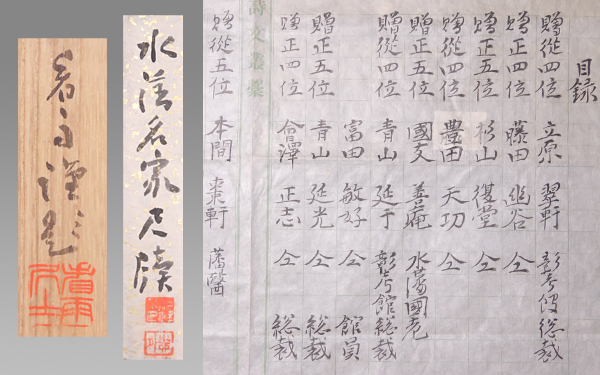 目録
贈從四位 立原 翠軒 彰考館総裁
贈正四位 藤田 幽谷 仝
贈正五位 杉山 復堂 仝
贈從四位 豊田 天功 仝
贈正四位 國友 善庵 水藩國老
贈從四位 青山 延于 彰考館総裁
富田 敏好 仝 館員
贈正五位 青山 延光 仝 総裁
贈正四位 會澤 正志 仝 総裁
詩文叢
贈從五位 本間 棗軒 藩醫
水藩名家尺牘
謹題